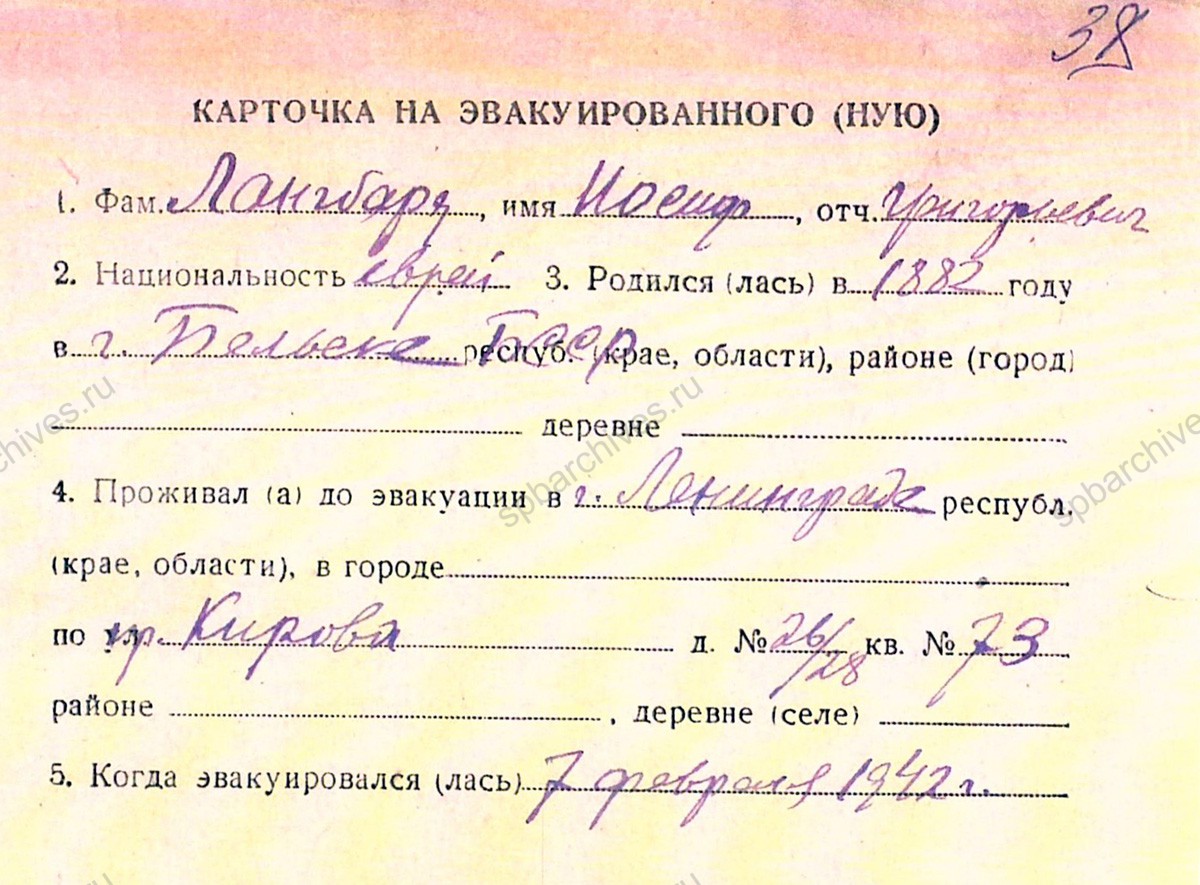 38
КАРТОЧКА НА ЭВАКУИРОВАННОГО (НУЮ)
1. Фам. Лангбард, имя Иосиф, отч. Григорьевич
2. Национальность еврей 3. Родился (лась) в 1882 году
в г. Бельске БССР респуб. (крае, области), районе (город)
деревне
4. Проживал (а) до эвакуации в г. Ленинграде республ.
(крае, области), в городе
по ул. пр. Кирова д. № 26/28 кв. № 73
районе , деревне (селе)
5. Когда эвакуировался (лась) 7 февраля 1942 г.
spbarchives.ru